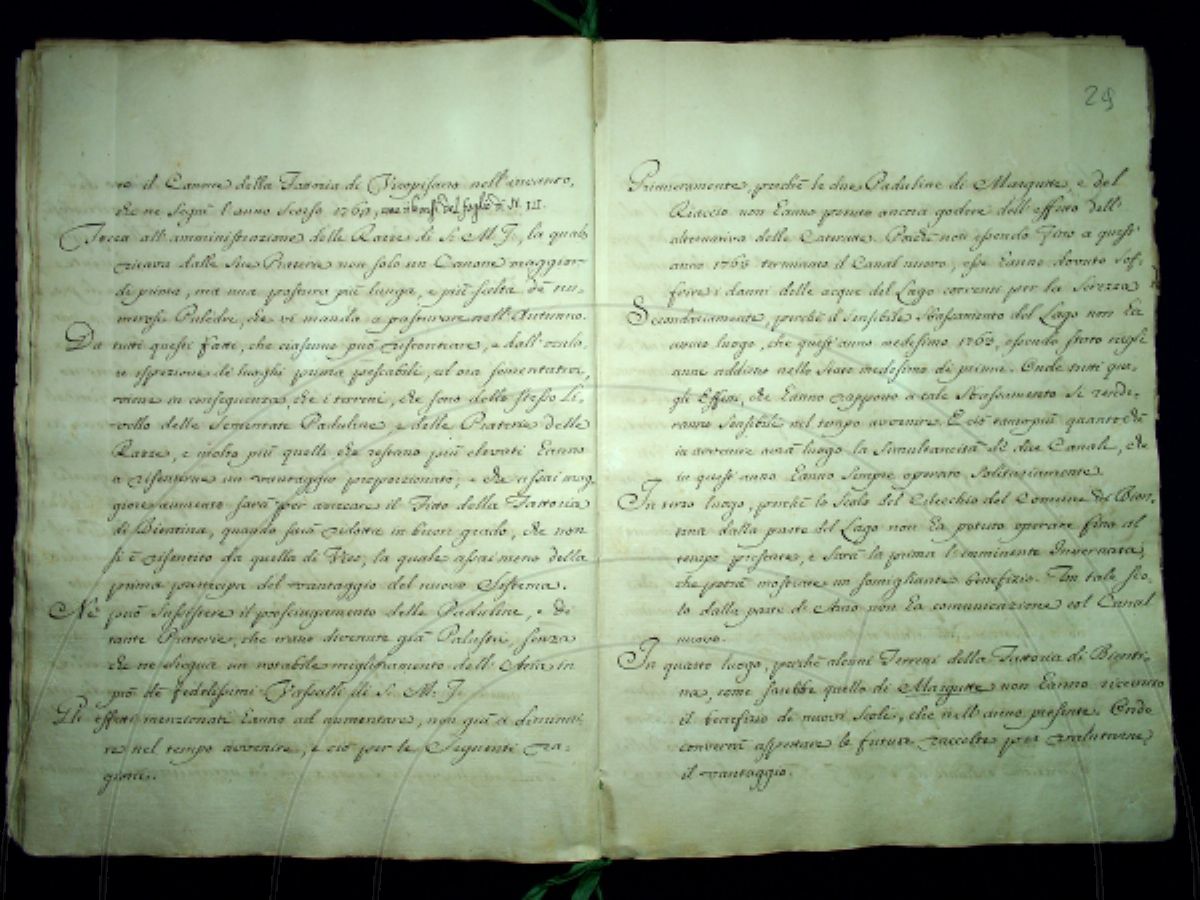 re il Canone della Fattoria di Vicopisano nell'incanto,
che ne seguì l'anno scorso 1762, del foglio di N. III.
Tocca all'amministrazione delle Razze di S. M. I., la quale
ricava dalle sue Praterie non solo un Canone maggiore
di prima, ma una pastura più lunga, e più scelta de nu-
merosi Puledri, che vi manda a pasturare nell'Autunno.
Da tutti questi fatti, che ciascuno può riscontrare, e dall'ocula-
re ispezione de luoghi prima pescabili, ed ora sementati,
viene in conseguenza, che i terreni, che sono dello stesso Li-
vello delle Sementate Paduline e delle Praterie delle
Razze, e molto più quelli che restano più elevati hanno
a risentirne un vantaggio proporzionato, e che assai mag-
giore aumento sarà per avanzare il Fitto della Fattoria
di Bientina, quando sarà ridotta in buon grado, che non
si è risentito da quella di Vico, la quale assai meno della
prima partecipa del vantaggio del nuovo Sistema.
Né può sussistere il prosciugamento delle Paduline, e di
tante Praterie, che erano divenute già Palustri, senza
che ne segua un notabile miglioramento dell'Aria in
prò de fedelissimi Vassalli di S. M. I.
Gli effetti menzionati hanno ad aumentare, non già a diminui-
re nel tempo avvenire, e ciò per le seguenti ra-
gioni.
29
Primieramente, perché le due Paduline di Margutte, e del
Riaccio non hanno potuto ancora godere dell'effetto dell'
alternativa delle Cateratte. Poiché non essendo fino a quest'
anno 1763 terminato il Canal nuovo, esse hanno dovuto sof-
frire i danni delle acque del Lago correnti per la Serezza
Secondariamente, perché il sensibile sbassamento del Lago non ha
avuto luogo, che quest'anno medesimo 1763, essendo stato negli
anni addietro nello stato medesimo di prima. Onde tutti que-
gli effetti, che hanno rapporto a tale sbassamento si rende-
ranno sensibili nel tempo avvenire. E ciò tantopiù quanto che
in avvenire avrà luogo la simultaneità de due Canali, che
in quest'anno hanno sempre operato solitariamente.
In terzo luogo, perché lo Scolo del Cilecchio del Comune di Bien-
tina dalla parte del Lago non ha potuto operare fino al
tempo presente, e sarà la prima l'imminente Invernata,
che potrà mostrare un somigliante benefizio. Un tale Sco-
lo dalla parte di Arno non ha comunicazione col Canal
nuovo.
In quarto luogo, perché alcuni Terreni della Fattoria di Bienti-
na, come sarebbe quello di Margutte non hanno ricevuto
il benefizio de nuovi Scoli, che nell'anno presente. Onde
converrà aspettare le future raccolte per valutarne
il vantaggio.